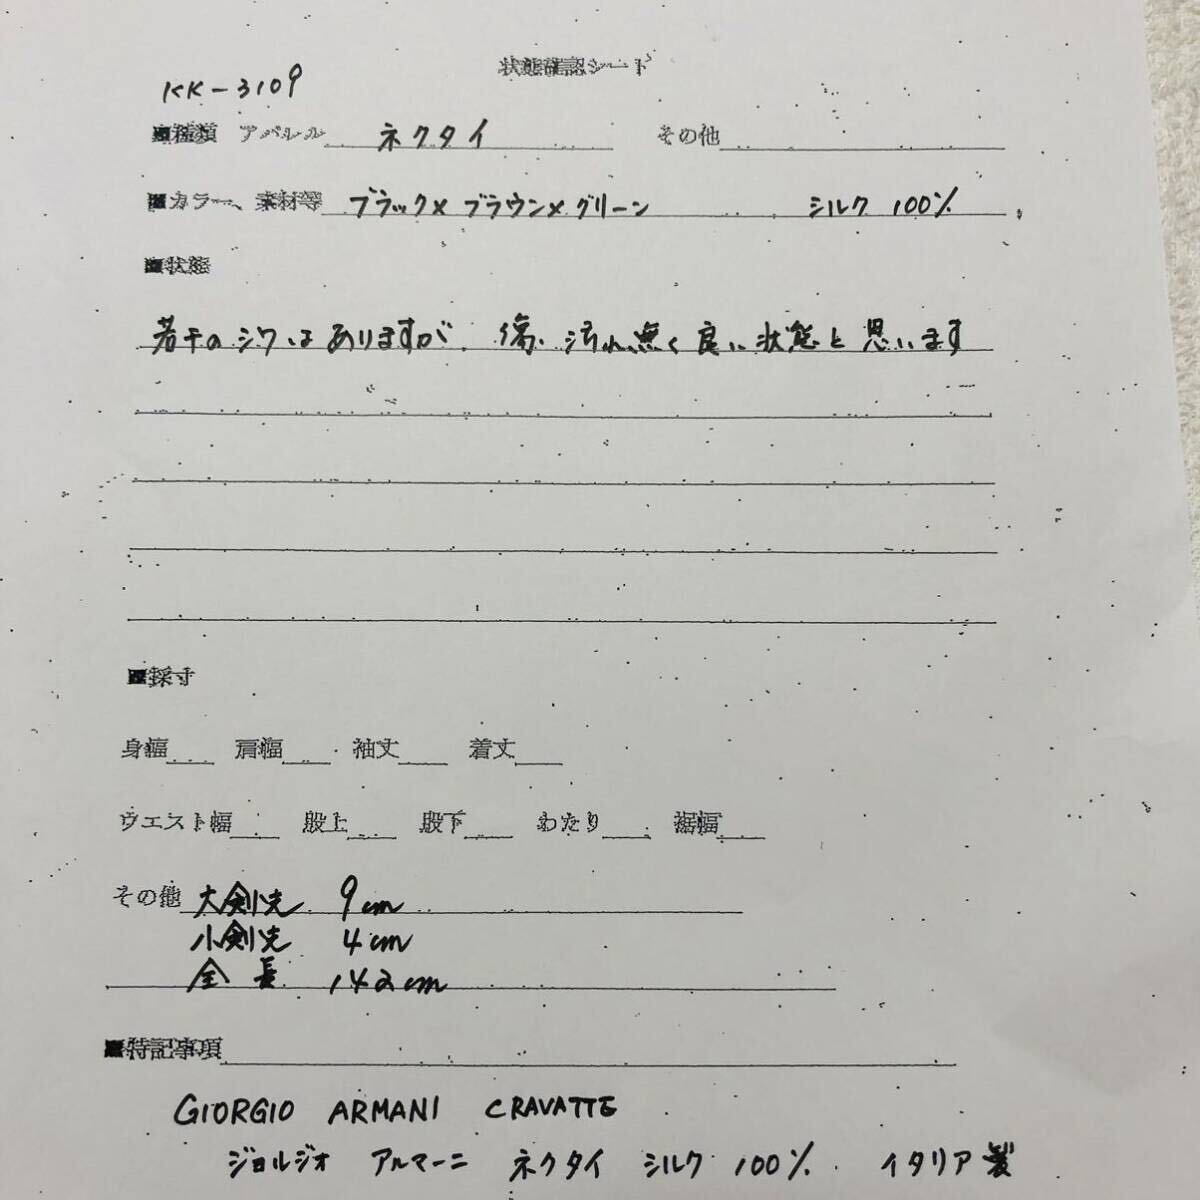 状態確認シート
KK-3109
■種類 アパレル ネクタイ その他
■カラー、素材等 ブラック×ブラウン×グリーン シルク 100%
■状態
若干のシワはありますが、傷、汚れ無く良い状態と思います
■採寸
身幅 肩幅 袖丈 着丈
ウエスト幅 股上 股下 わたり 裾幅
その他 大剣先 9cm
小剣先 4cm
全長 142cm
■特記事項
GIORGIO ARMANI CRAVATTE
ジョルジオ アルマーニ ネクタイ シルク 100% イタリア製